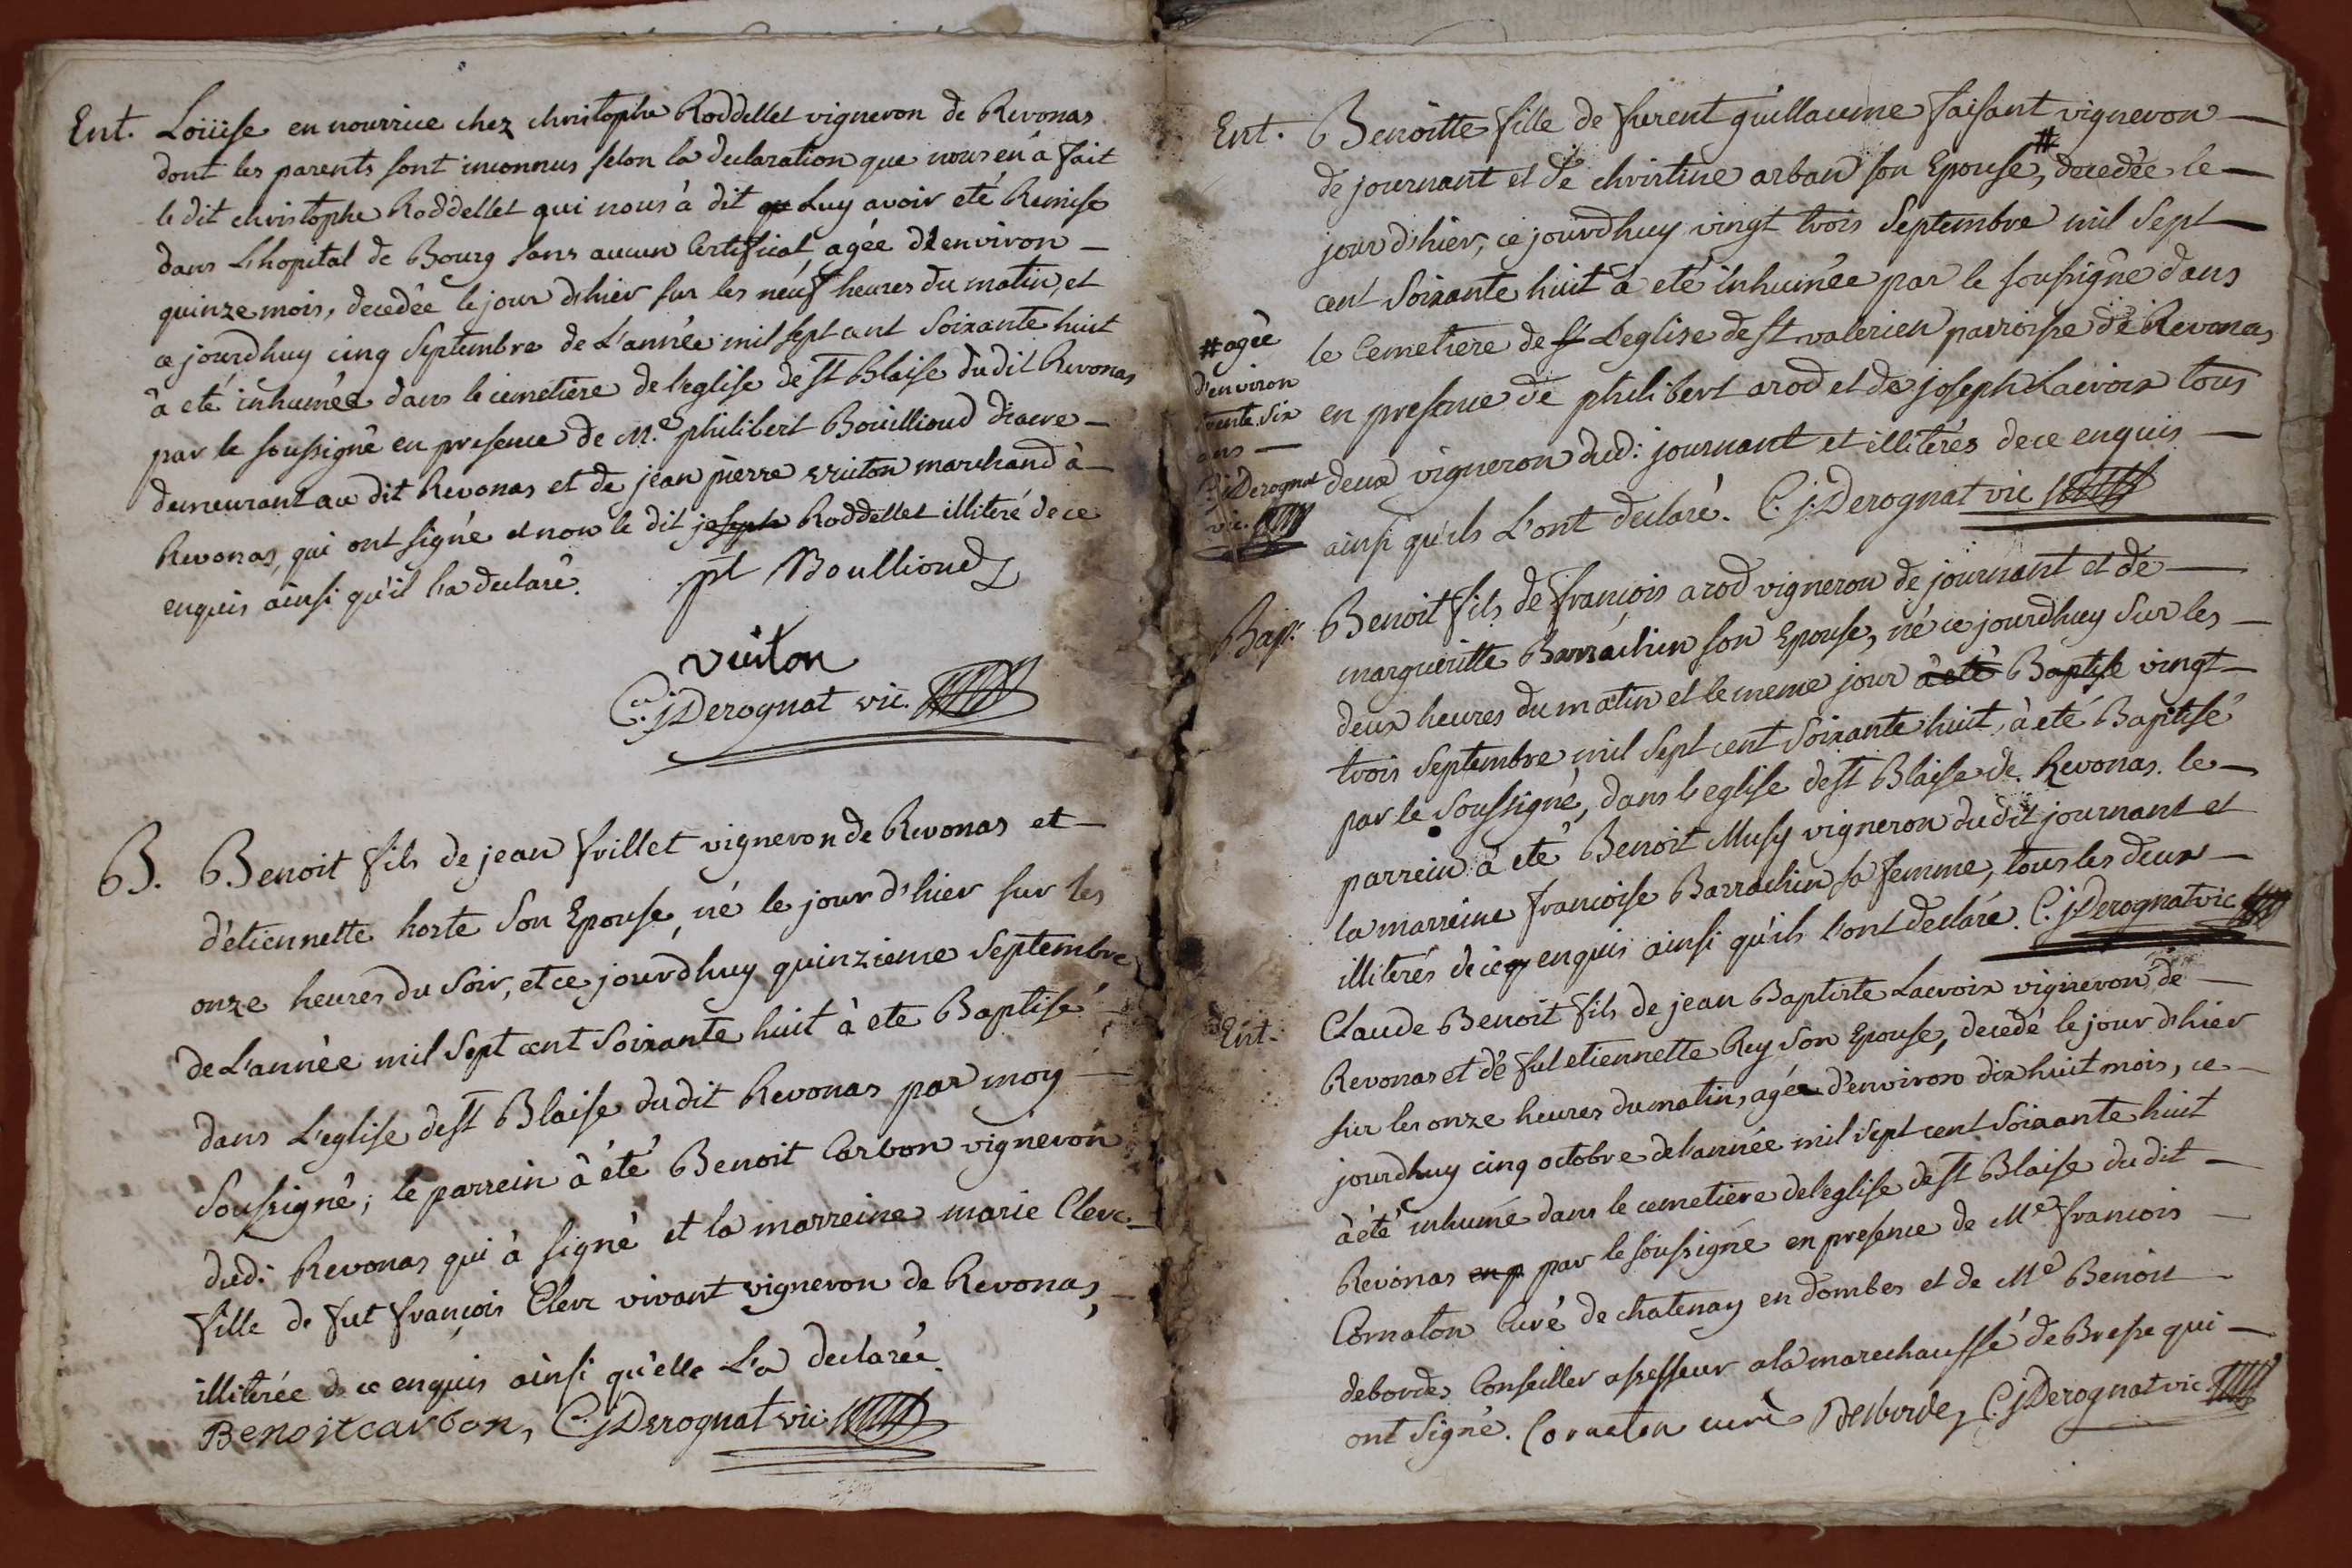 Ent. Loüise en nourrice chez christophe Roddellet vigneron de Revonas
dont les parents sont inconnus selon la declaration que nous en à fait
le dit christophe Roddellet qui nous à dit Luy avoir eté Remise
dans L'hopital de Bourg sans aucun Certificat, agée d'environ
quinze mois, decedêe le jour d'hier sur les neuf heures du matin, et
ce jourdhuy cinq Septembre de L'année mil sept cent soixante huit
à eté inhumée dans le cimetière de l'eglise de st Blaise du dit Revonas
par le soussigné en presence de Me philibert Bouillioud diacre
demeurant au dit Revonas et de jean pierre vuiton marchand à
Revonas, qui ont signé et non le dit joseph Roddellet illiteré de ce
enquis ainsi qu'il l'a declaré. pt Boullioud
vuiton
C. j. Derognat vic.
B. Benoit fils de jean frillet vigneron de Revonas et
d'etiennette hoste son Epouse, né le jour d'hier sur les
onze heures du soir, et ce jourdhuy quinzieme septembre
de L'année mil sept cent soixante huit à ete Baptisé
dans L'eglise de st Blaise du dit Revonas par moy
soussigné; le parrein à été Benoit Carbon vigneron
dud: Revonas qui à signé et la marreine marie Clerc
fille de fut françois Clerc vivant vigneron de Revonas,
illiterée de ce enquis ainsi qu'elle L'a declarée.
Benoit carbon, C. j. Derognat vic
Ent. Benoitte fille de furent guillaume faisant vigneron
de journant et de christine arban son Epouse, # decedée le
jour d'hier, ce jourdhuy vingt trois Septembre mil sept
cent soixante huit à eté inhumée par le soussigné dans
le Cemetiere de st L'eglise de st valerien parroisse de Revonas
en presence de philibert arod et de joseph Lacroix tous
deux vigneron dud: journant et illiterés de ce enquis
ainsi qu'ils L'ont declaré. C. j. Derognat vic
# agée
d'environ
trente six
ans
C. j. Derognat
vic.
Bap. Benoit fils de françois arod vigneron de journant et de
margueritte Barrachin son Epouse, né ce jourdhuy sur les
deux heures du matin et le meme jour à eté Baptise vingt
trois Septembre mil sept cent soixante huit, à eté Baptisé
par le soussigné, dans l'eglise de st Blaise de Revonas. le
parrein à eté Benoit Musy vigneron du dit journant et
la marreine francoise Barrachin sa femme, tous les deux
illiterés de ce enquis ainsi qu'ils l'ont declaré. C. j. Derognat vic
Ent. Claude Benoit fils de jean Baptiste Lacroix vigneron de
Revonas et de fut etiennette Rey son Epouse, decedé le jour d'hier
sur les onze heures du matin, agée d'environ dix huit mois, ce
jourdhuy cinq octobre de l'année mil sept cent soixante huit
à été inhumé dans le cemetière de l'eglise de st Blaise du dit
Revonas en p par le soussigné en presence de Me francois
Cornaton Curé de chatenay en dombes et de Me Benoit
debordes Conseiller assesseur a la marechaussé de Bresse qui
ont signé. Cornaton curé Desborde, C. j. Derognat vic.